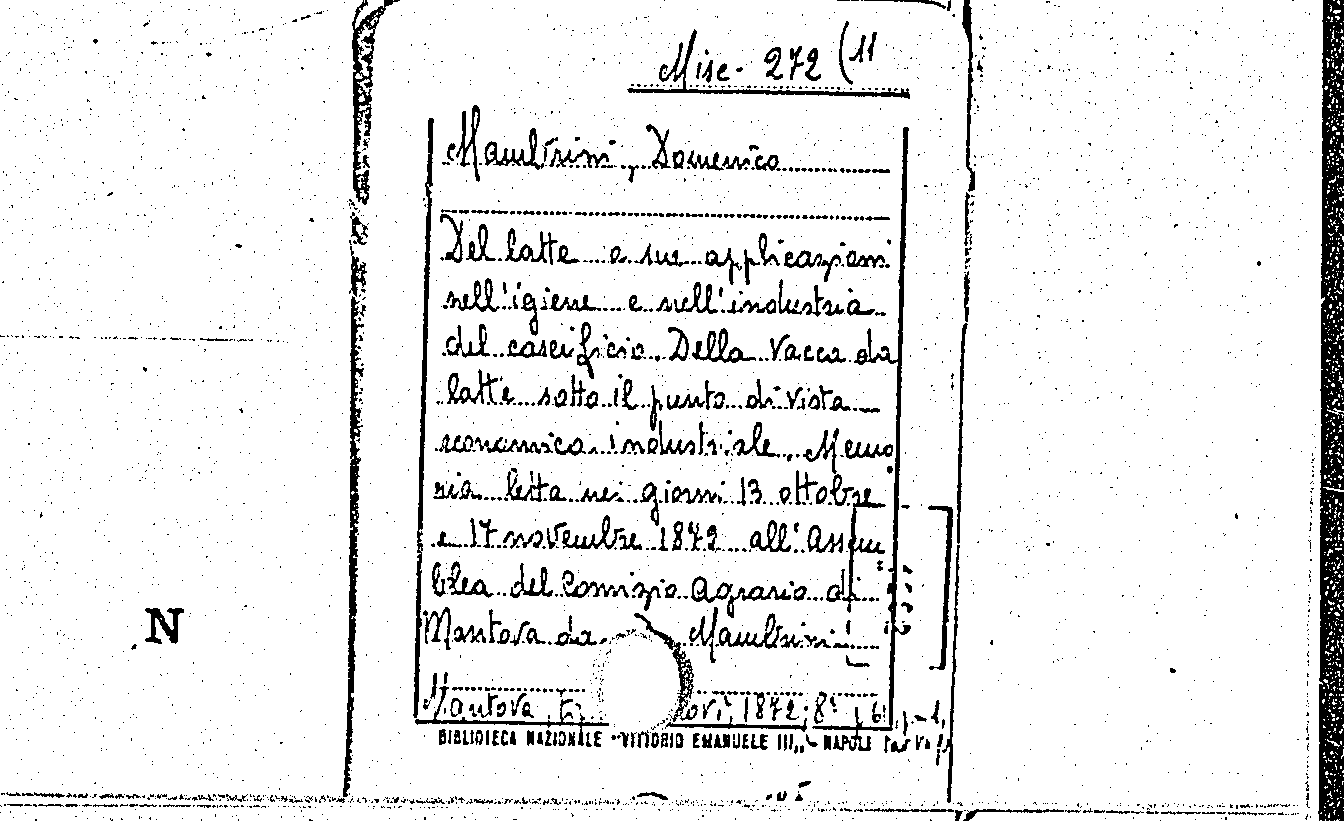 Misc. 272 (11
Mambrini, Domenico
Del latte e sue applicazioni
nell'igiene e nell'industria
del caseificio. Della vacca da
latte sotto il punto di vista
economico industriale. Memo
ria letta nei giorni 13 ottobre
e 17 novembre 1872 all'Assem
blea del Comizio Agrario di
Mantova da Mambrini
N
Mantova, 1872; 8°
BIBLIOTECA NAZIONALE "VITTORIO EMANUELE III„ - NAPOLI